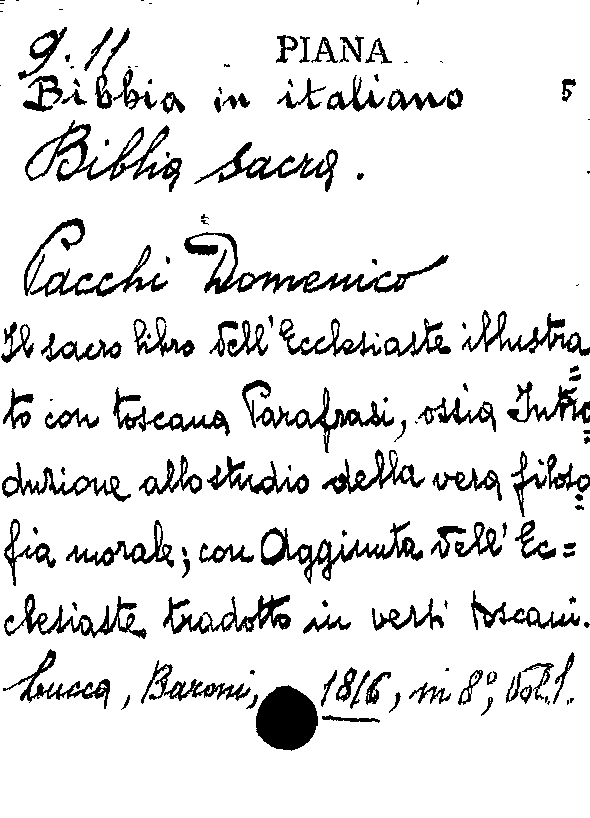 9. 11 PIANA
Bibbia in italiano 5
Biblia sacra.
Pacchi Domenico
Il sacro libro dell'Ecclesiaste illustra=
to con toscana Parafrasi, ossia Intro=
duzione allo studio della vera filoso=
fia morale; con Aggiunta dell'Ec=
clesiaste tradotto in versi toscani.
Lucca, Baroni, 1816, in 8°, Vol. 1.